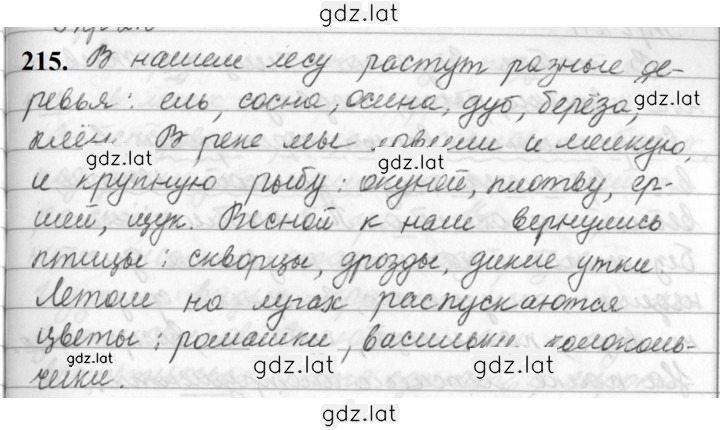 gdz.lat
215. В нашем лесу растут разные де-
ревья: ель, сосна, осина, дуб, берёза,
gdz.lat
клён. В реке мы ловили и мелкую,
gdz.lat gdz.lat
и крупную рыбу: окуней, плотву, ер-
шей, щук. Весной к нам вернулись
птицы: скворцы, дрозды, дикие утки.
Летом на лугах распускаются
цветы: ромашки, васильки, колоколь-
gdz.lat gdz.lat gdz.lat
чики.
gdz.lat